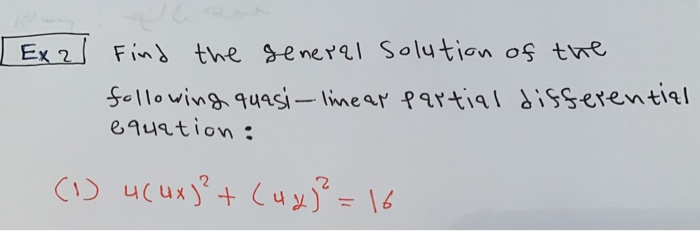 Ex 2 Find the general solution of the
following quasi-linear partial differential
equation:
(1) u(ux)² + (uy)² = 16